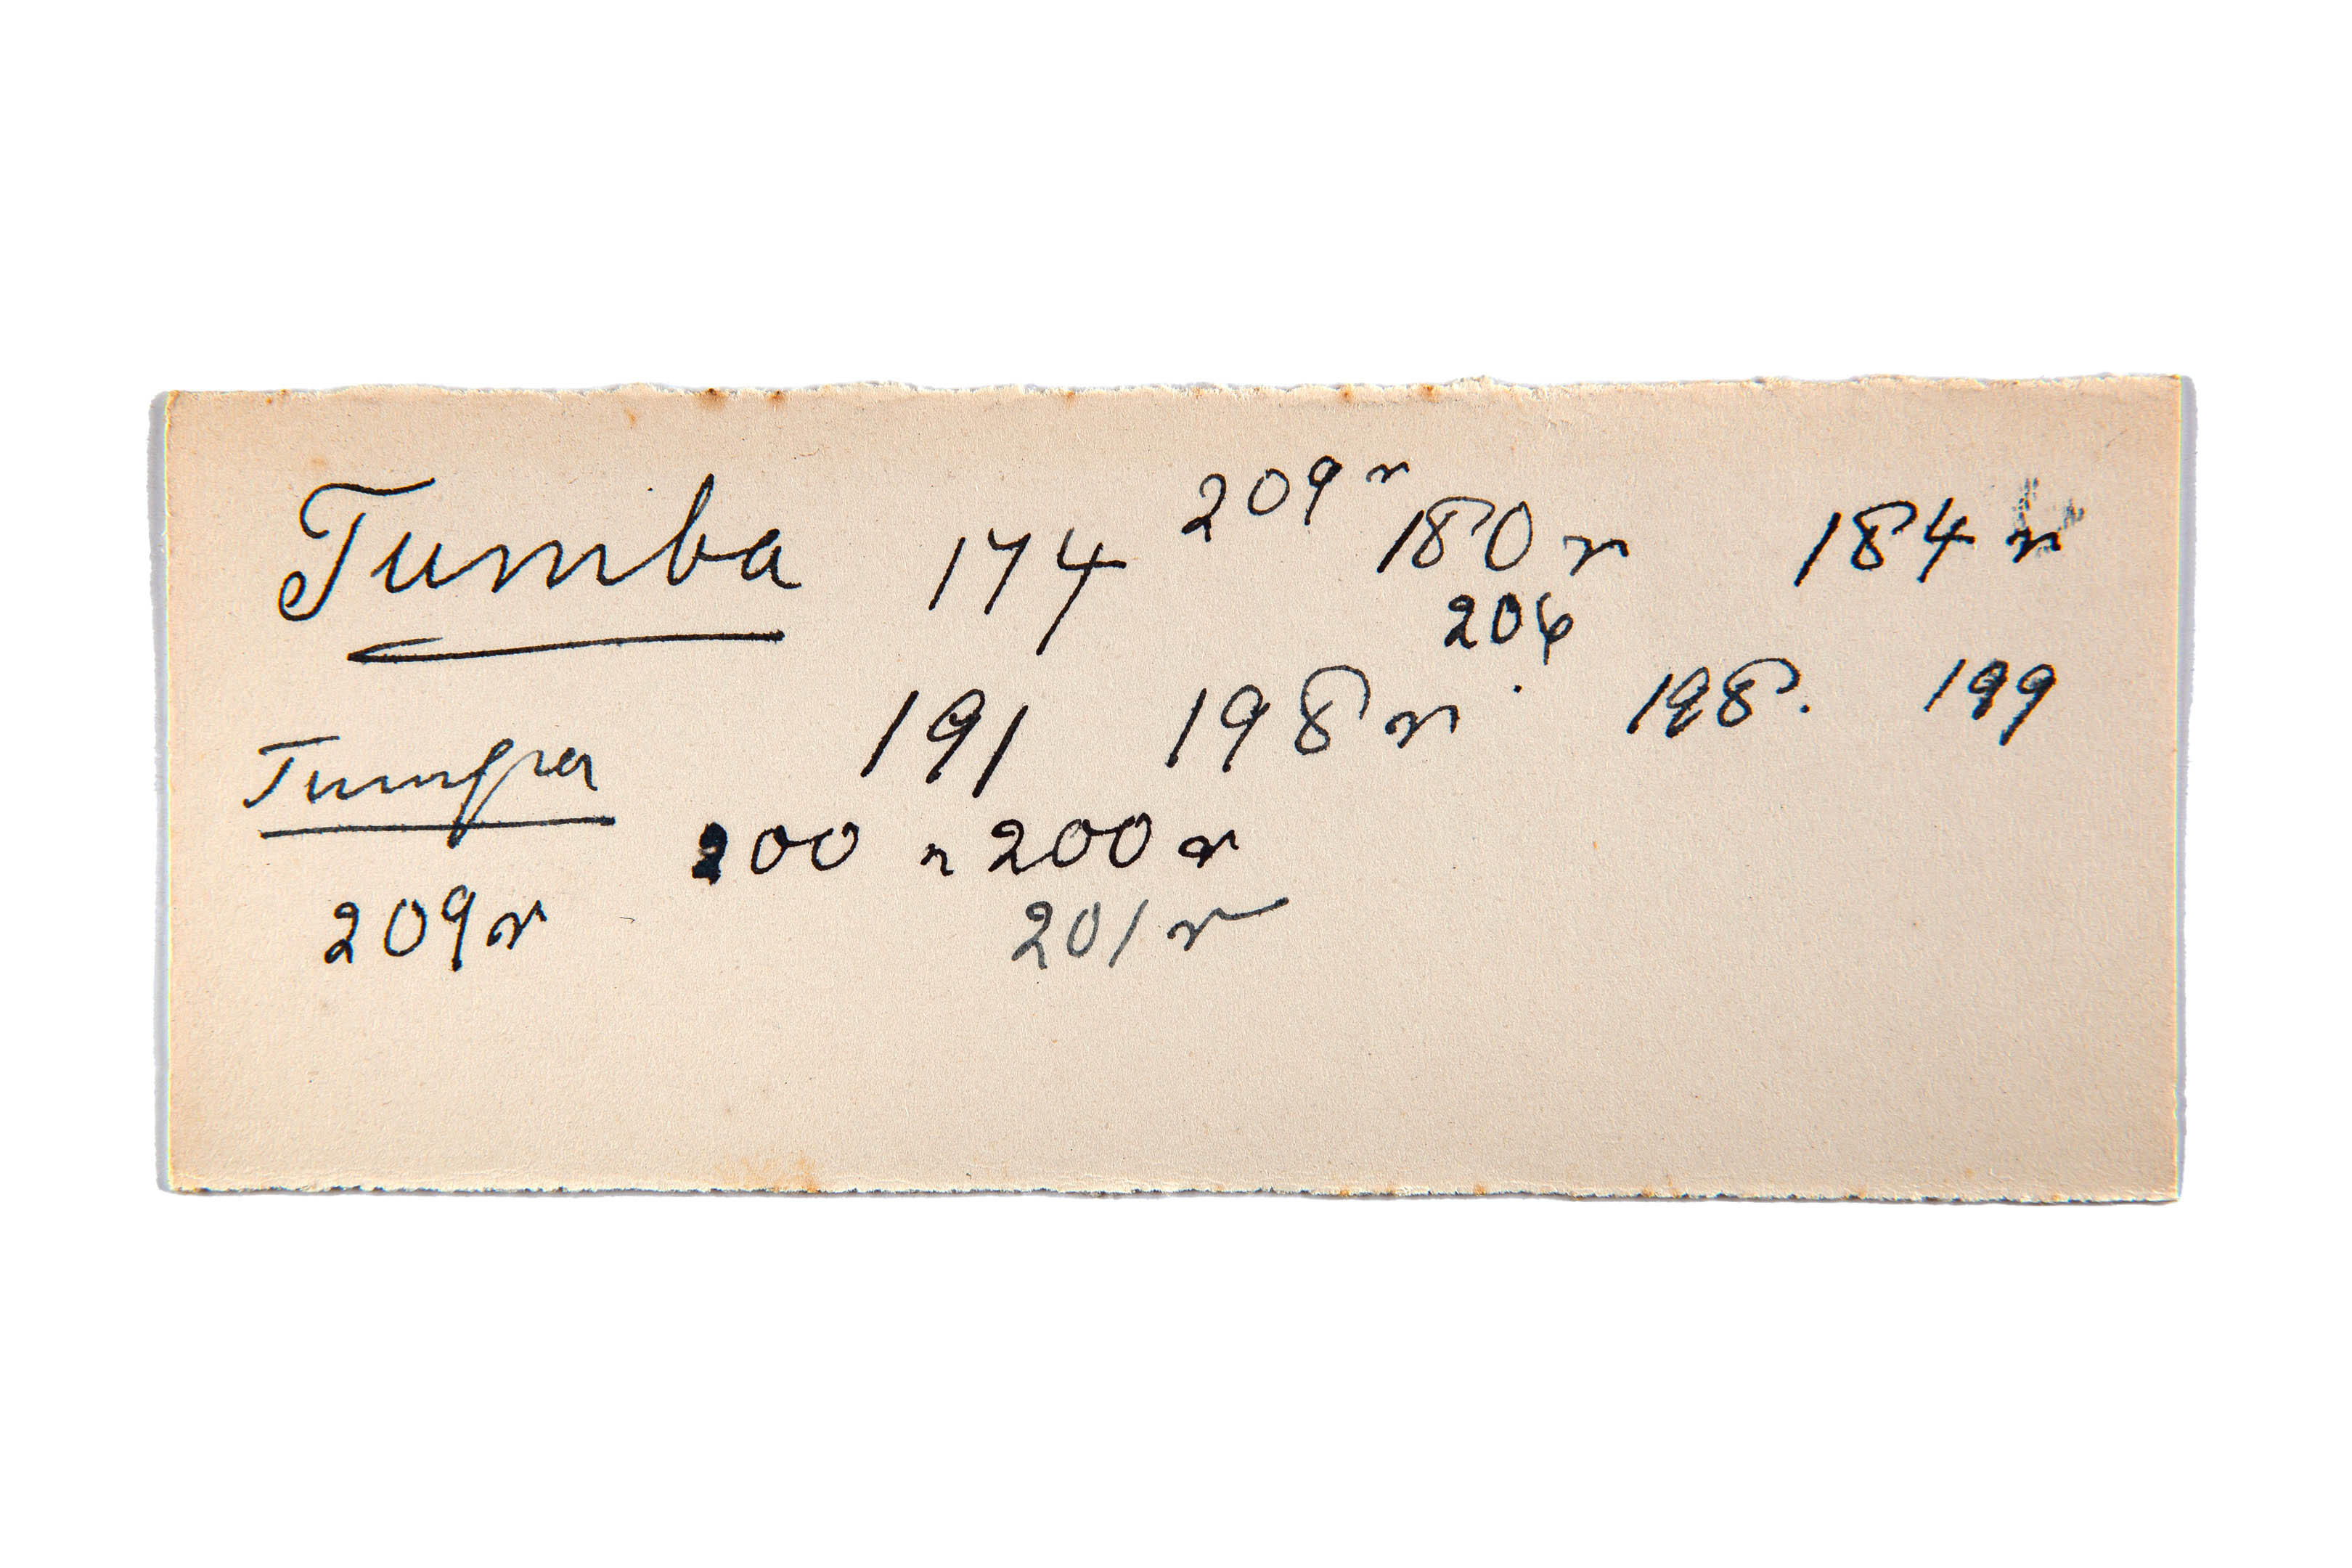 Tumba 174 209 r 180 r 184 r
206
191 198 r 198. 199
Tumpa
200 r 200 r
209 r 201 r